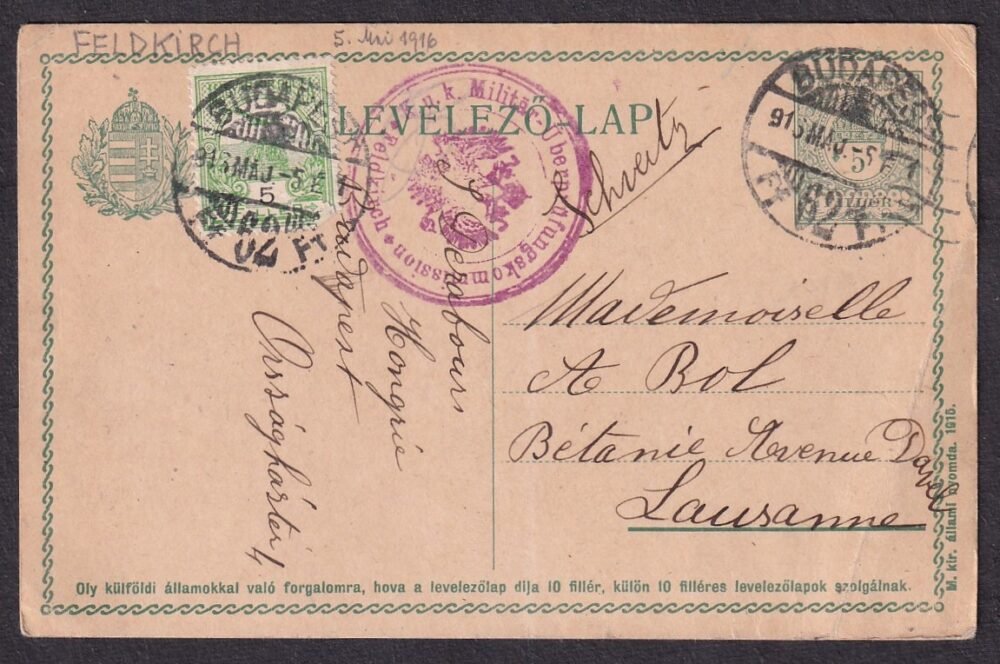 FELDKIRCH
5. Mai 1916
LEVELEZŐ-LAP
BUDAPEST
916 MÁJ. -5
62
5
BUDAPEST
916 MÁJ. -5
62
5
FILLÉR
K. u. k. Militär-Überprüfungskommission
Feldkirch
Schweitz
Mademoiselle
A Bol
Bétanie Avenue Davel
Lausanne
Hongrie
Budapest
Országház tér 4
Oly külföldi államokkal való forgalomra, hova a levelezőlap dija 10 fillér, külön 10 filléres levelezőlapok szolgálnak.
M. kir. állami nyomda. 1915.